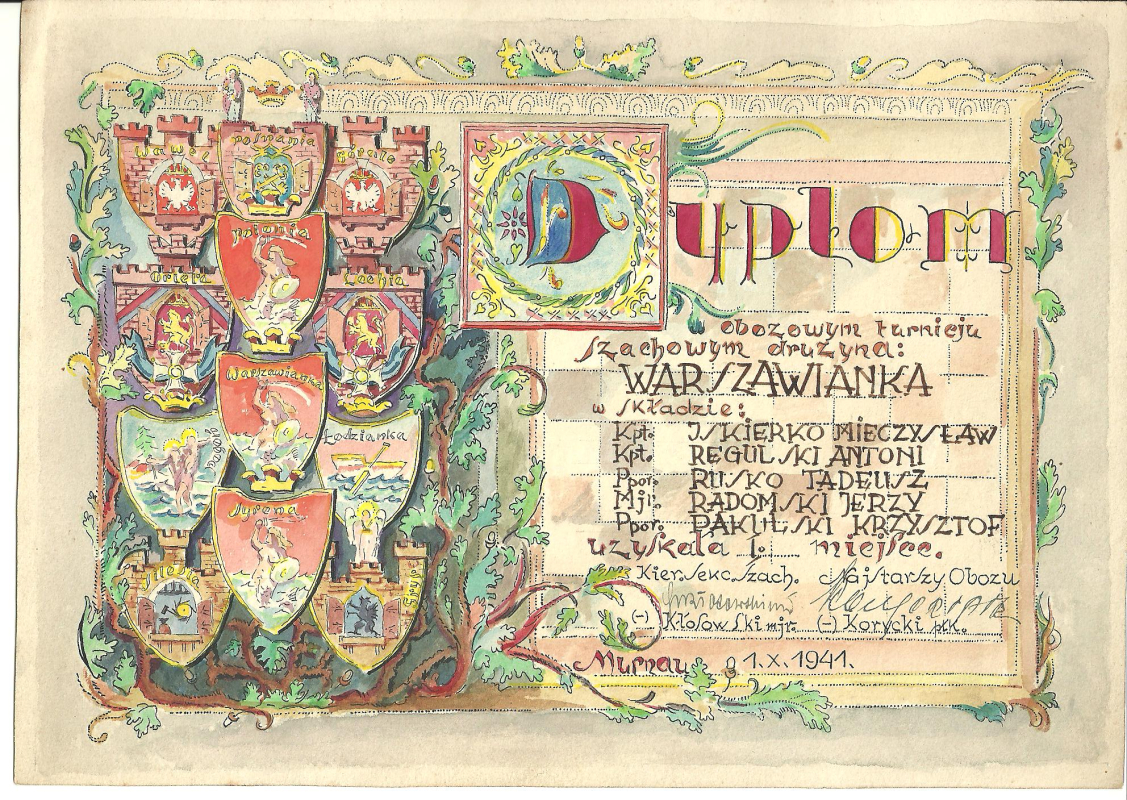 Wawel
Posnania
Górale
Polonia
Orlęta
Lechia
Warszawianka
Łodzianka
Syrena
Śląsk
Dyplom
W obozowym turnieju
szachowym drużyna:
WARSZAWIANKA
w składzie:
Kpt. ISKIERKO MIECZYSŁAW
Kpt. REGULSKI ANTONI
Ppor. RUSKO TADEUSZ
Mjr. RADOMSKI JERZY
Ppor. PAKULSKI KRZYSZTOF
uzyskała I. miejsce.
Kier. Sekc. Szach. Najstarszy Obozu
(-) Kłosowski mjr. (-) Korycki płk.
Murnau 1.X.1941.